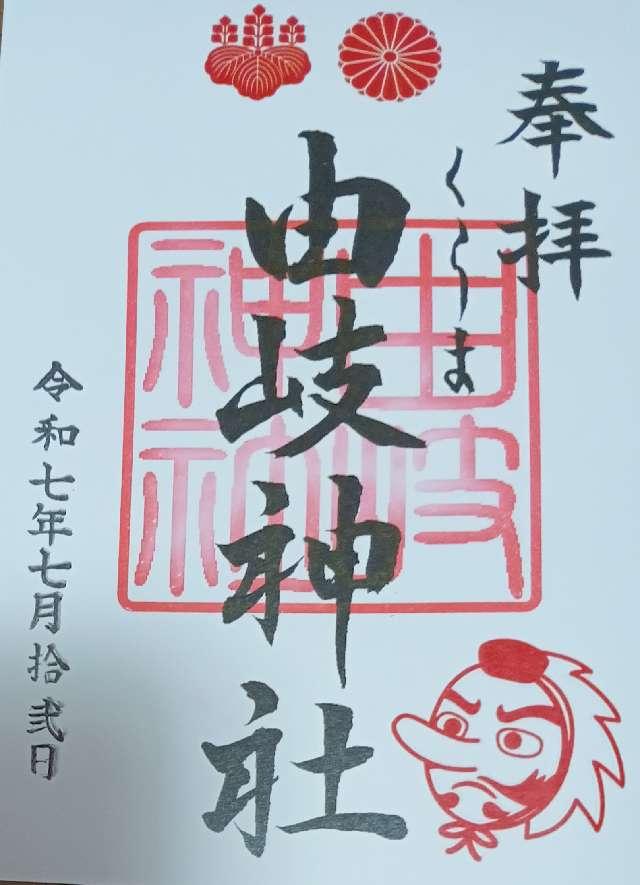 奉拝
くらま
由岐神社
由岐神社
令和七年七月拾弐日